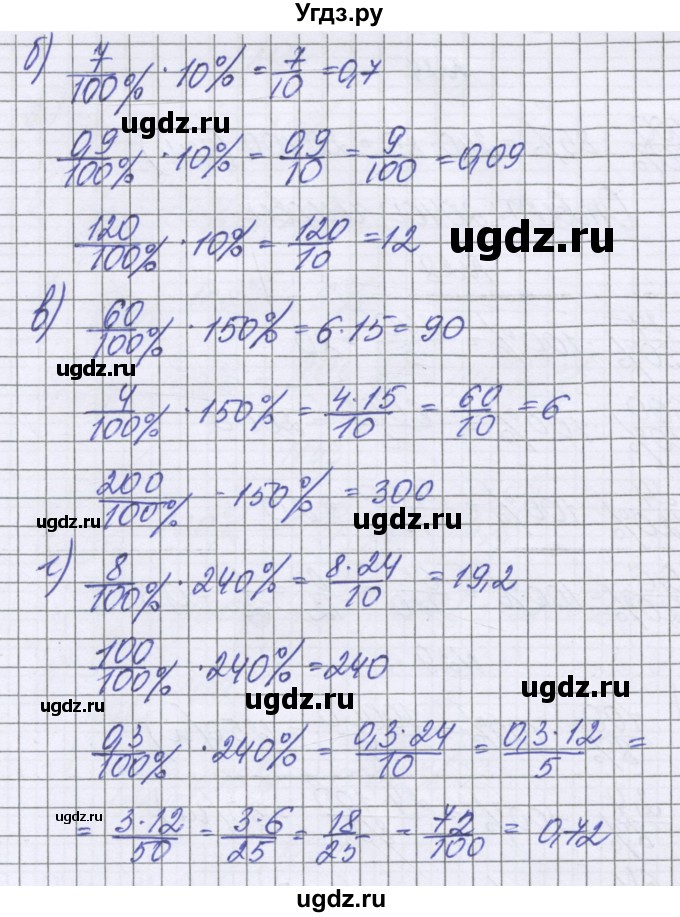 Угдз.ру
б) 7/100% · 10% = 7/10 = 0,7
ugdz.ru
0,9/100% · 10% = 0,9/10 = 9/100 = 0,09
120/100% · 10% = 120/10 = 12
ugdz.ru
ugdz.ru
в) 60/100% · 150% = 6·15 = 90
ugdz.ru
4/100% · 150% = 4·15/10 = 60/10 = 6
200/100% - 150% = 300
ugdz.ru
ugdz.ru
г) 8/100% · 240% = 8·24/10 = 19,2
100/100% · 240% = 240
ugdz.ru
ugdz.ru
ugdz.ru
0,3/100% · 240% = 0,3·24/10 = 0,3·12/5 =
ugdz.ru
= 3·12/50 = 3·6/25 = 18/25 = 72/100 = 0,72
ugdz.ru
ugdz.ru